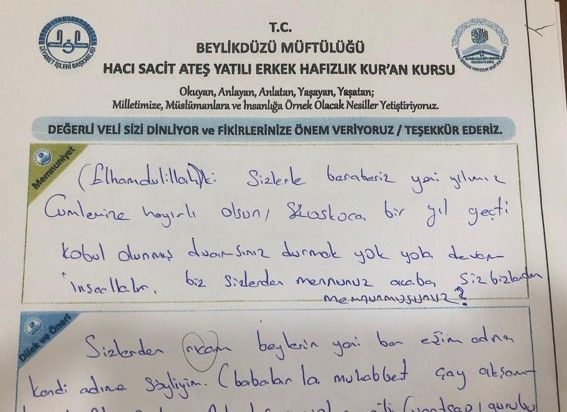 T.C.
BEYLİKDÜZÜ MÜFTÜLÜĞÜ
HACI SACİT ATEŞ YATILI ERKEK HAFIZLIK KUR'AN KURSU
Okuyan, Anlayan, Anlatan, Yaşayan, Yaşatan;
Milletimize, Müslümanlara ve İnsanlığa Örnek Olacak Nesiller Yetiştiriyoruz.
DEĞERLİ VELİ SİZİ DİNLİYOR ve FİKİRLERİNİZE ÖNEM VERİYORUZ / TEŞEKKÜR EDERİZ.
Memnuniyet
(Elhamdulillah)ki Sizlerle beraberiz yeni yılımız
Cumlerine hayırlı olsun, Koskoca bir yıl geçti
Kabul olunmuş duamsınız durmak yok yola devam
inşeallah. biz sizlerden memnunuz acaba siz bizlerden
memnunmusunuz?
Dilek ve Öneri
Sizlerden beylerin yani ben eşim adına
kendi adıma söyliyim. (babalarla muhabbet çay akşam